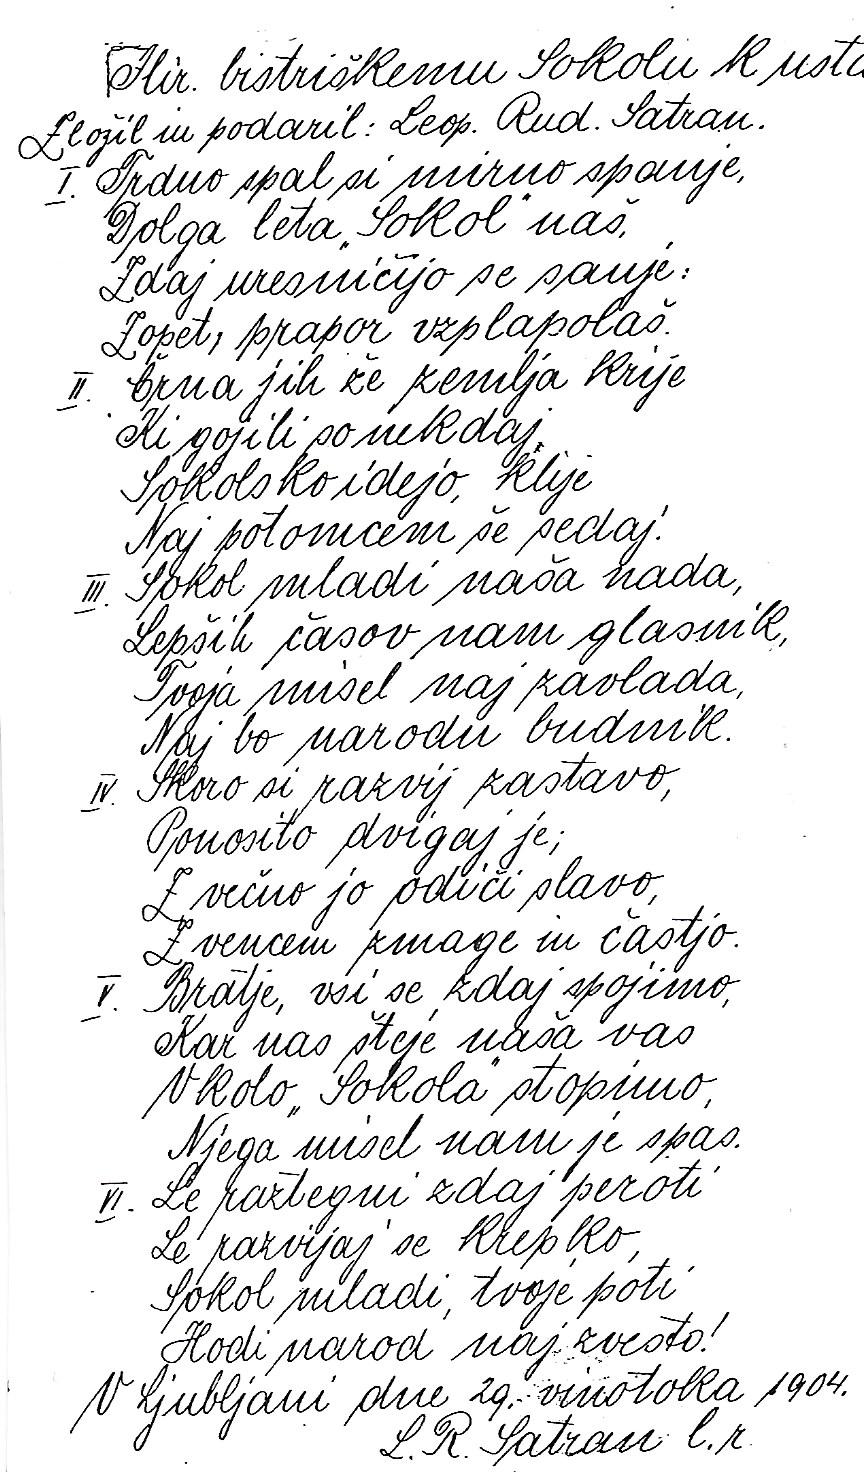 Ilir. bistriškemu Sokolu k usta
Zložil in podaril: Leop. Rud. Satran.
I. Trdno spal si mirno spanje,
Dolga leta „Sokol" naš,
Zdaj uresničijo se sanje:
Zopet, prapor vzplapolaš.
II. Črna jih že zemlja krije
Ki gojili so nekdaj,
Sokolsko idejo, klije
Naj potomcem še sedaj!
III. Sokol mladi naša nada,
Lepših časov nam glasnik,
Tvoja misel naj zavlada,
Naj bo narodu budnik.
IV. Skoro si razvij zastavo,
Ponosito dvigaj je;
Z večno jo odiči slavo,
Z vencem zmage in častjo.
V. Bratje, vsi se zdaj spojimo,
Kar nas šteje naša vas
V kolo „Sokola" stopimo,
Njega misel nam je spas.
VI. Le raztegni zdaj peroti
Le razvijaj se krepko,
Sokol mladi, tvoje poti
Hodi narod naj zvesto!
V Ljubljani dne 29. vinotoka 1904.
L. R. Satran l. r.